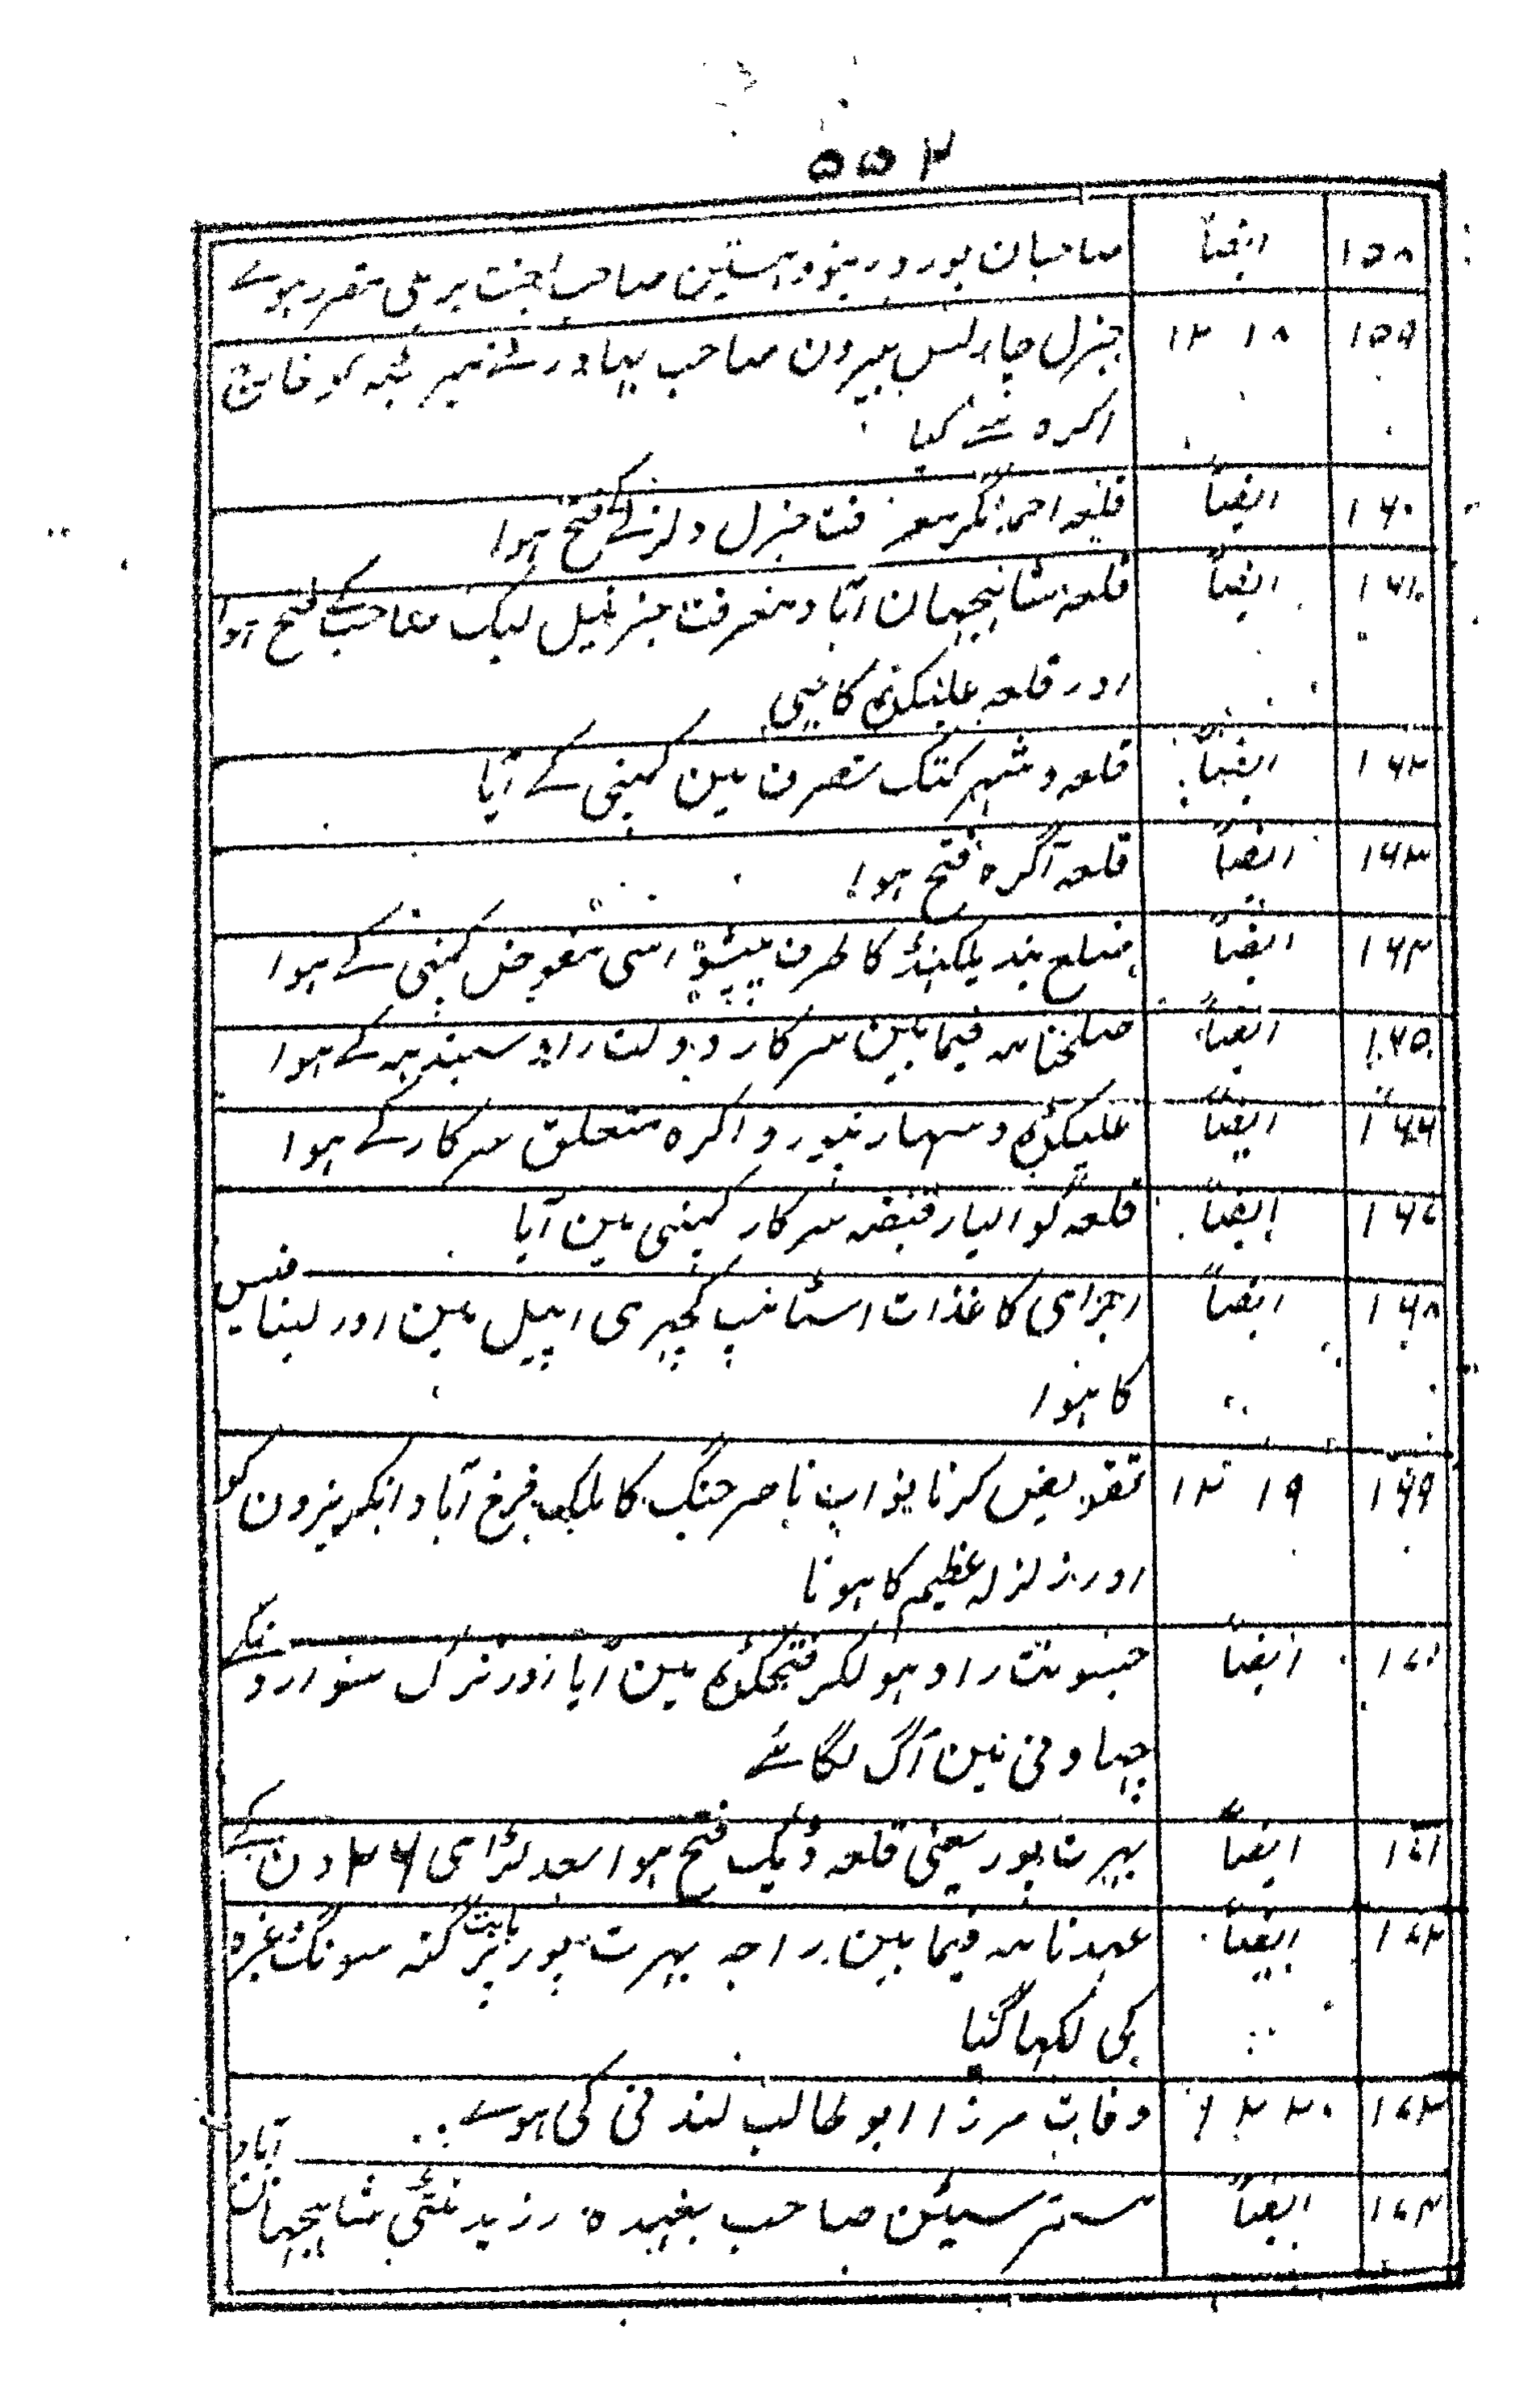 ۵۵۲
۱۵۸ ایضاً صاحبان بورد رینو وہستین صاحب اجنت بریلی مقرر ہوے
۱۵۹ ۱۲۱۸ جنرل چارلس پیرون صاحب بہادر نے
اکرہ نے کیا
۱۶۰ ایضاً قلعہ احمدنگر معرفت جنرل ولزلے کے فتح ہوا
۱۶۱ ایضاً قلعہ شاہجہان آباد معرفت جنرئیل لیک صاحب کے فتح ہوا
اور قلعہ علیگڈہ کا بھی
۱۶۲ ایضاً قلعہ و شہر کتک تصرف مین کمپنی کے آیا
۱۶۳ ایضاً قلعہ آگرہ فتح ہوا
۱۶۴ ایضاً ضلع بندیلکہنڈ کا طرف پیشوا سی مفوض کمپنی کے ہوا
۱۶۵ ایضاً صلحنامہ فیمابین سرکار و دولت راو سیندہیہ کے ہوا
۱۶۶ ایضاً علیگڈہ و سہارنپور و اکرہ متعلق سرکار کے ہوا
۱۶۷ ایضاً قلعہ گوالیار قبضہ سرکار کمپنی مین آیا
۱۶۸ ایضاً اجرای کاغذات اسٹانپ کچہری اپیل مین اور لینا فیس
کا ہوا
۱۶۹ ۱۲۱۹ تفویض کرنا نواب ناصر جنگ کا ملک فرخ آباد انگریزون کو
اور زلزلہ عظیمہ کا ہونا
۱۷۰ ایضاً جسونت راو ہولکر فتحگڈہ مین آیا اور ترک سوار و
چہاونی مین آگ لگائے
۱۷۱ ایضاً بہرت پور یعنی قلعہ ڈیگ فتح ہوا بعد لڑای ۲۶ دن کے
۱۷۲ ایضاً عہدنامہ فیمابین راجہ بہرت پور بابت پرگنہ سونگ وغیرہ
کی لکہا گیا
۱۷۳ ۱۲۲۰ وفات مرزا ابو طالب لندنی کی ہوے
۱۷۴ ایضاً مستر سیٹن صاحب بعہدہ رزیڈنٹی شاہجہان آباد